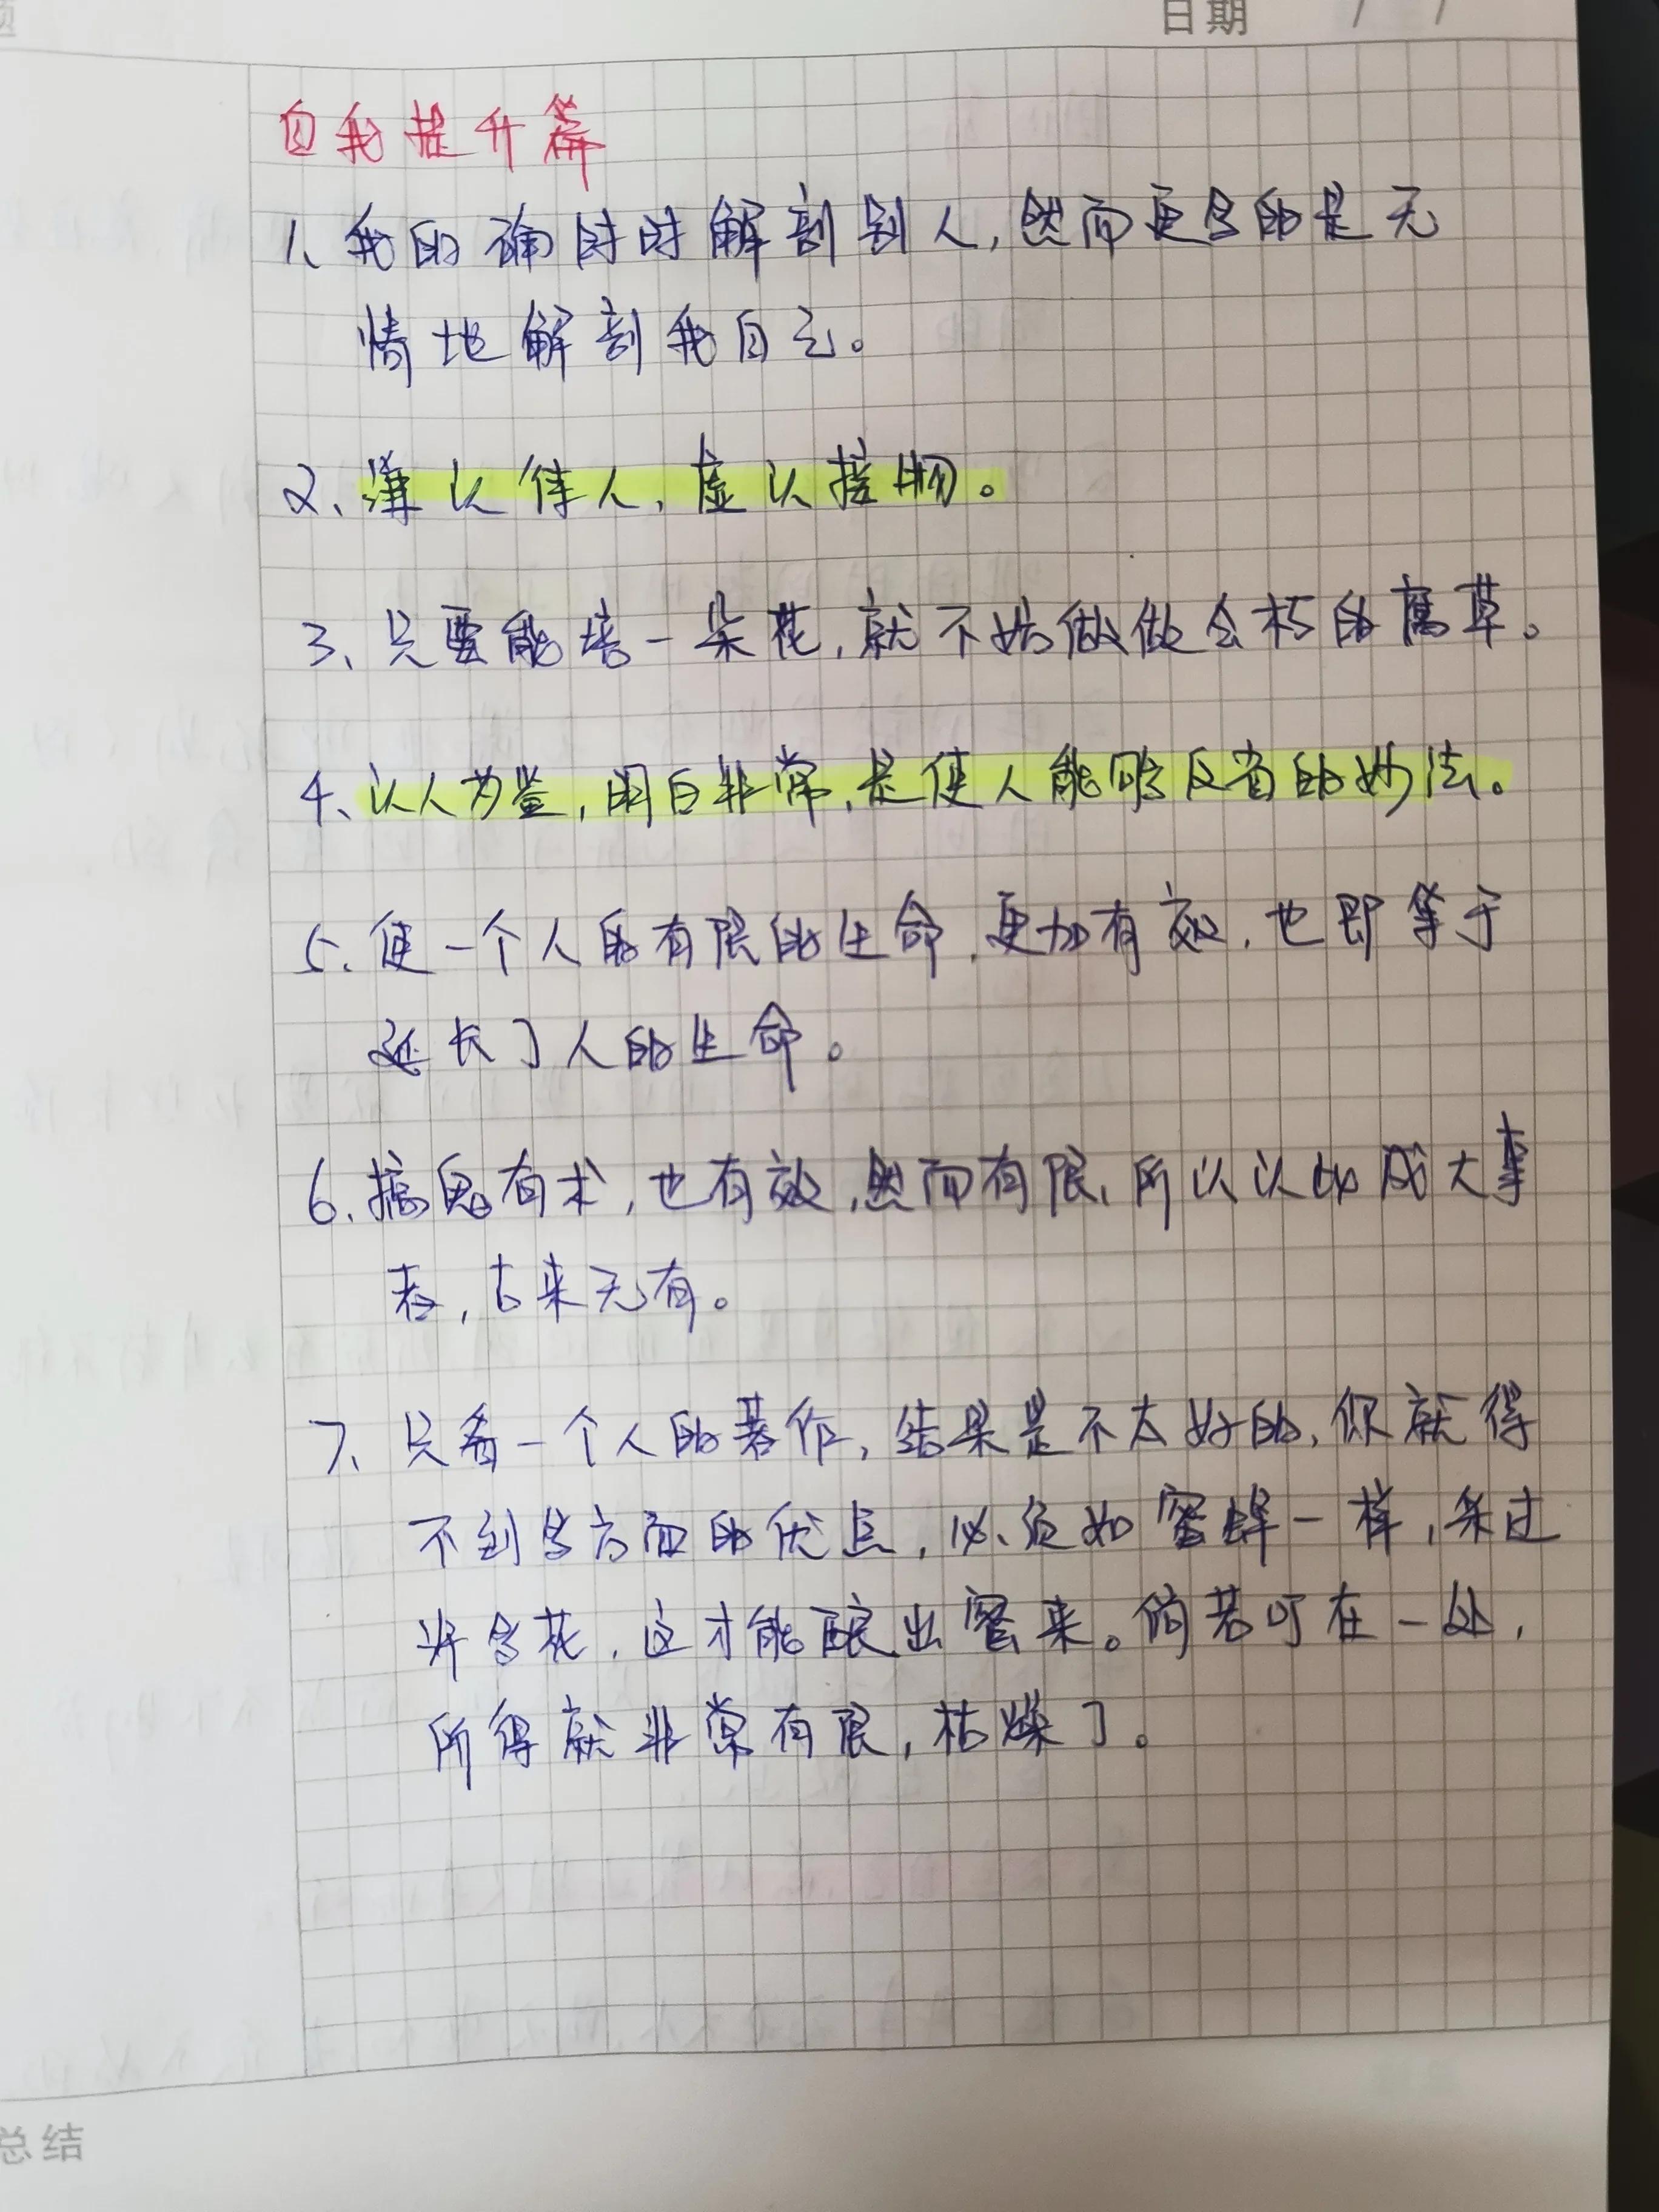 日期 / /
自我提升篇
1、我的确时时解剖别人,然而更多的是无
情地解剖我自己。
2、谦以待人,虚以接物。
3、只要能培一朵花,就不妨做做会朽的腐草。
4、以人为鉴,明白非常,是使人能够反省的妙法。
5、使一个人的有限的生命,更加有效,也即等于
延长了人的生命。
6、捣鬼有术,也有效,然而有限,所以以此成大事
者,古来无有。
7、只看一个人的著作,结果是不大好的,你就得
不到多方面的优点,必须如蜜蜂一样,采过
许多花,这才能酿出蜜来。倘若叮在一处,
所得就非常有限,枯燥了。
总结